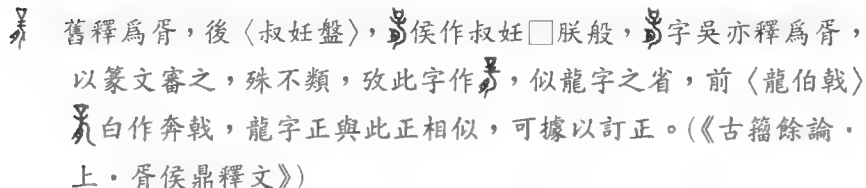 舊釋爲胥，後〈叔妊盤〉，侯作叔妊□朕般，字吳亦釋爲胥，
以篆文審之，殊不類，攷此字作，似龍字之省，前〈龍伯戟〉
白作奔戟，龍字正與此正相似，可據以訂正。(《古籀餘論．
上．胥侯鼎釋文》)